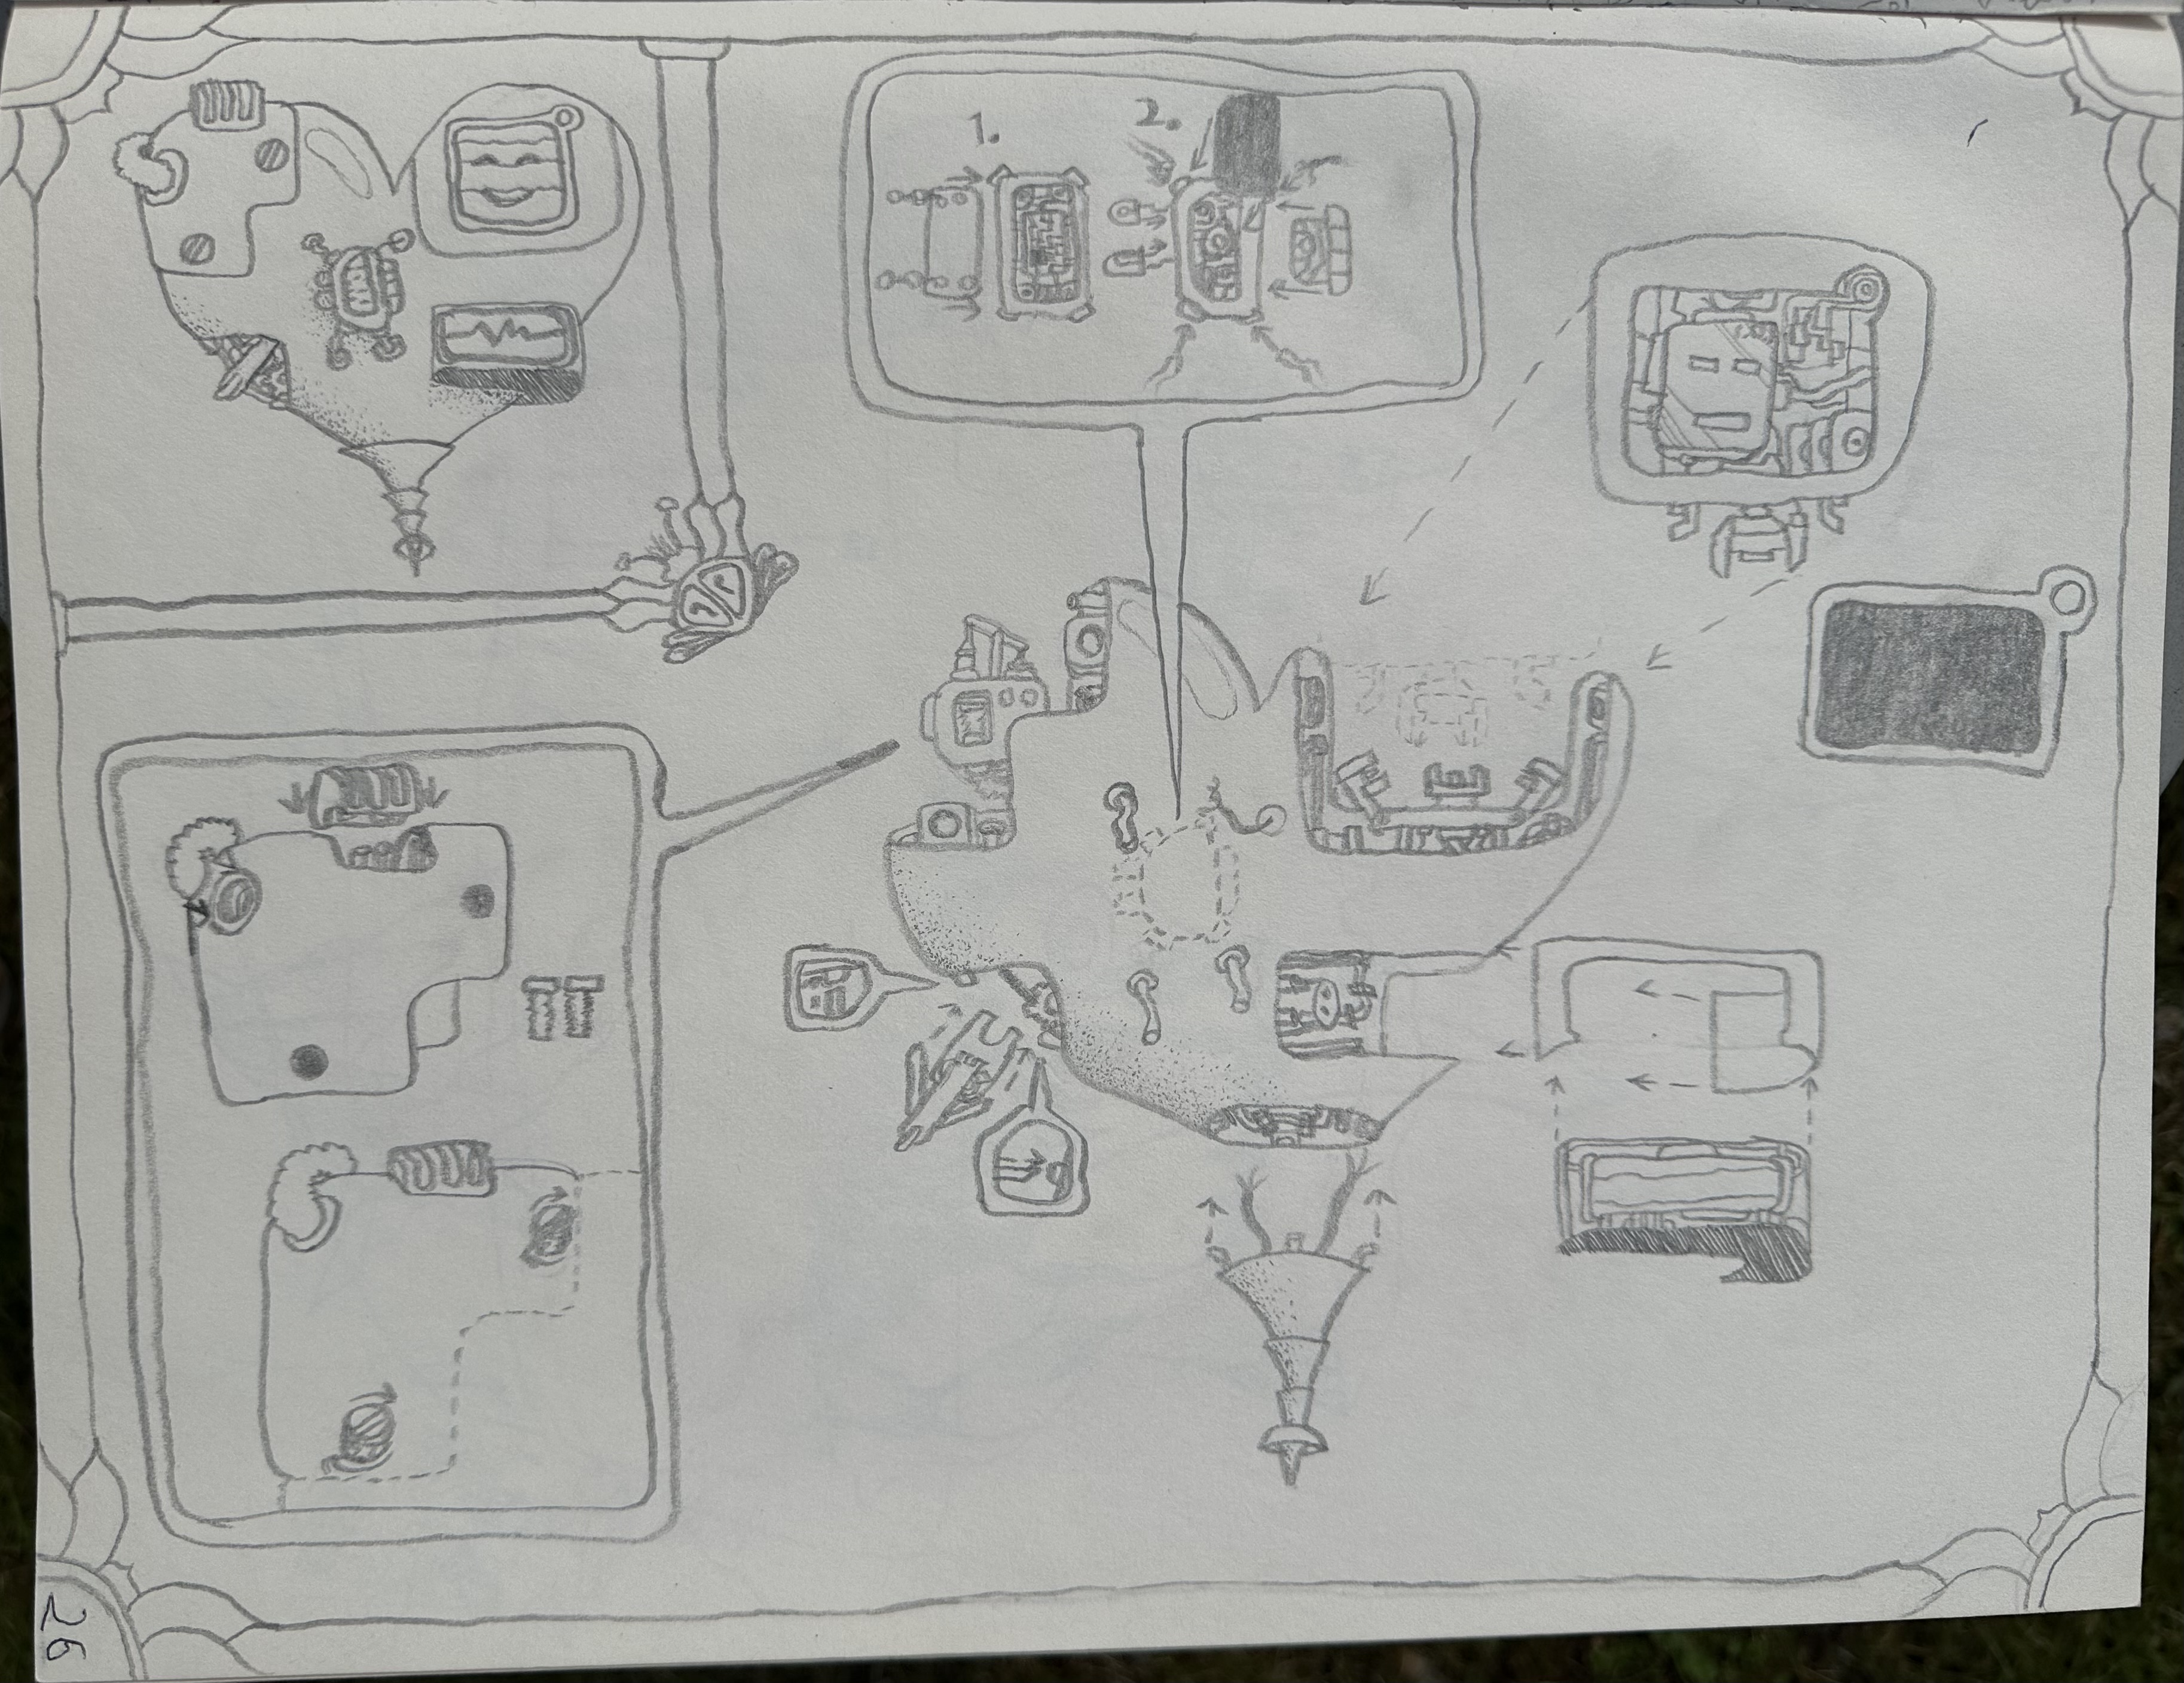 1.
2.
26